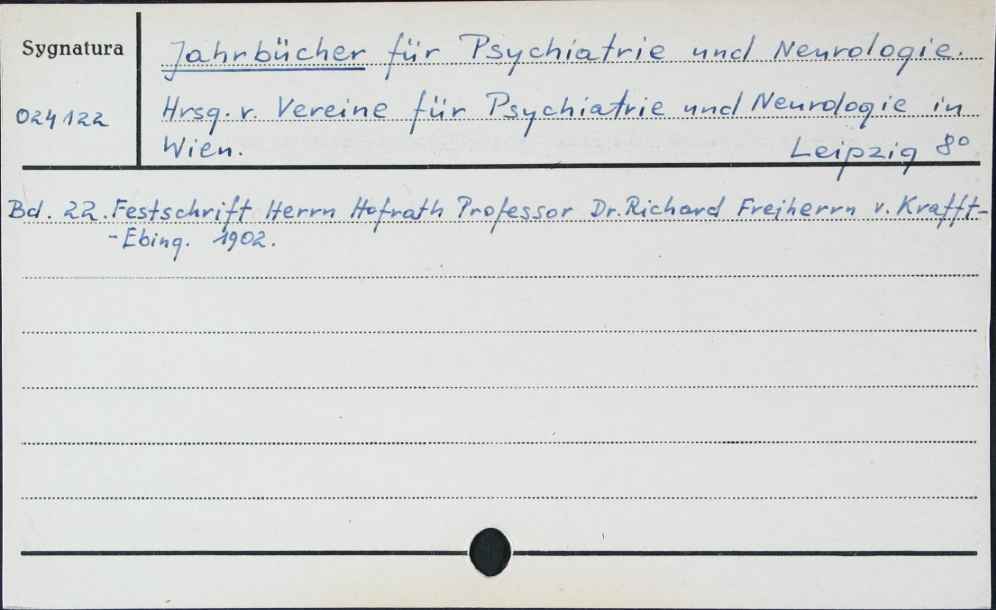 Sygnatura
024122
Jahrbücher für Psychiatrie und Neurologie.
Hrsg. v. Vereine für Psychiatrie und Neurologie in
Wien. Leipzig 8⁰
Bd. 22. Festschrift Herrn Hofrath Professor Dr. Richard Freiherrn v. Krafft-
-Ebing. 1902.